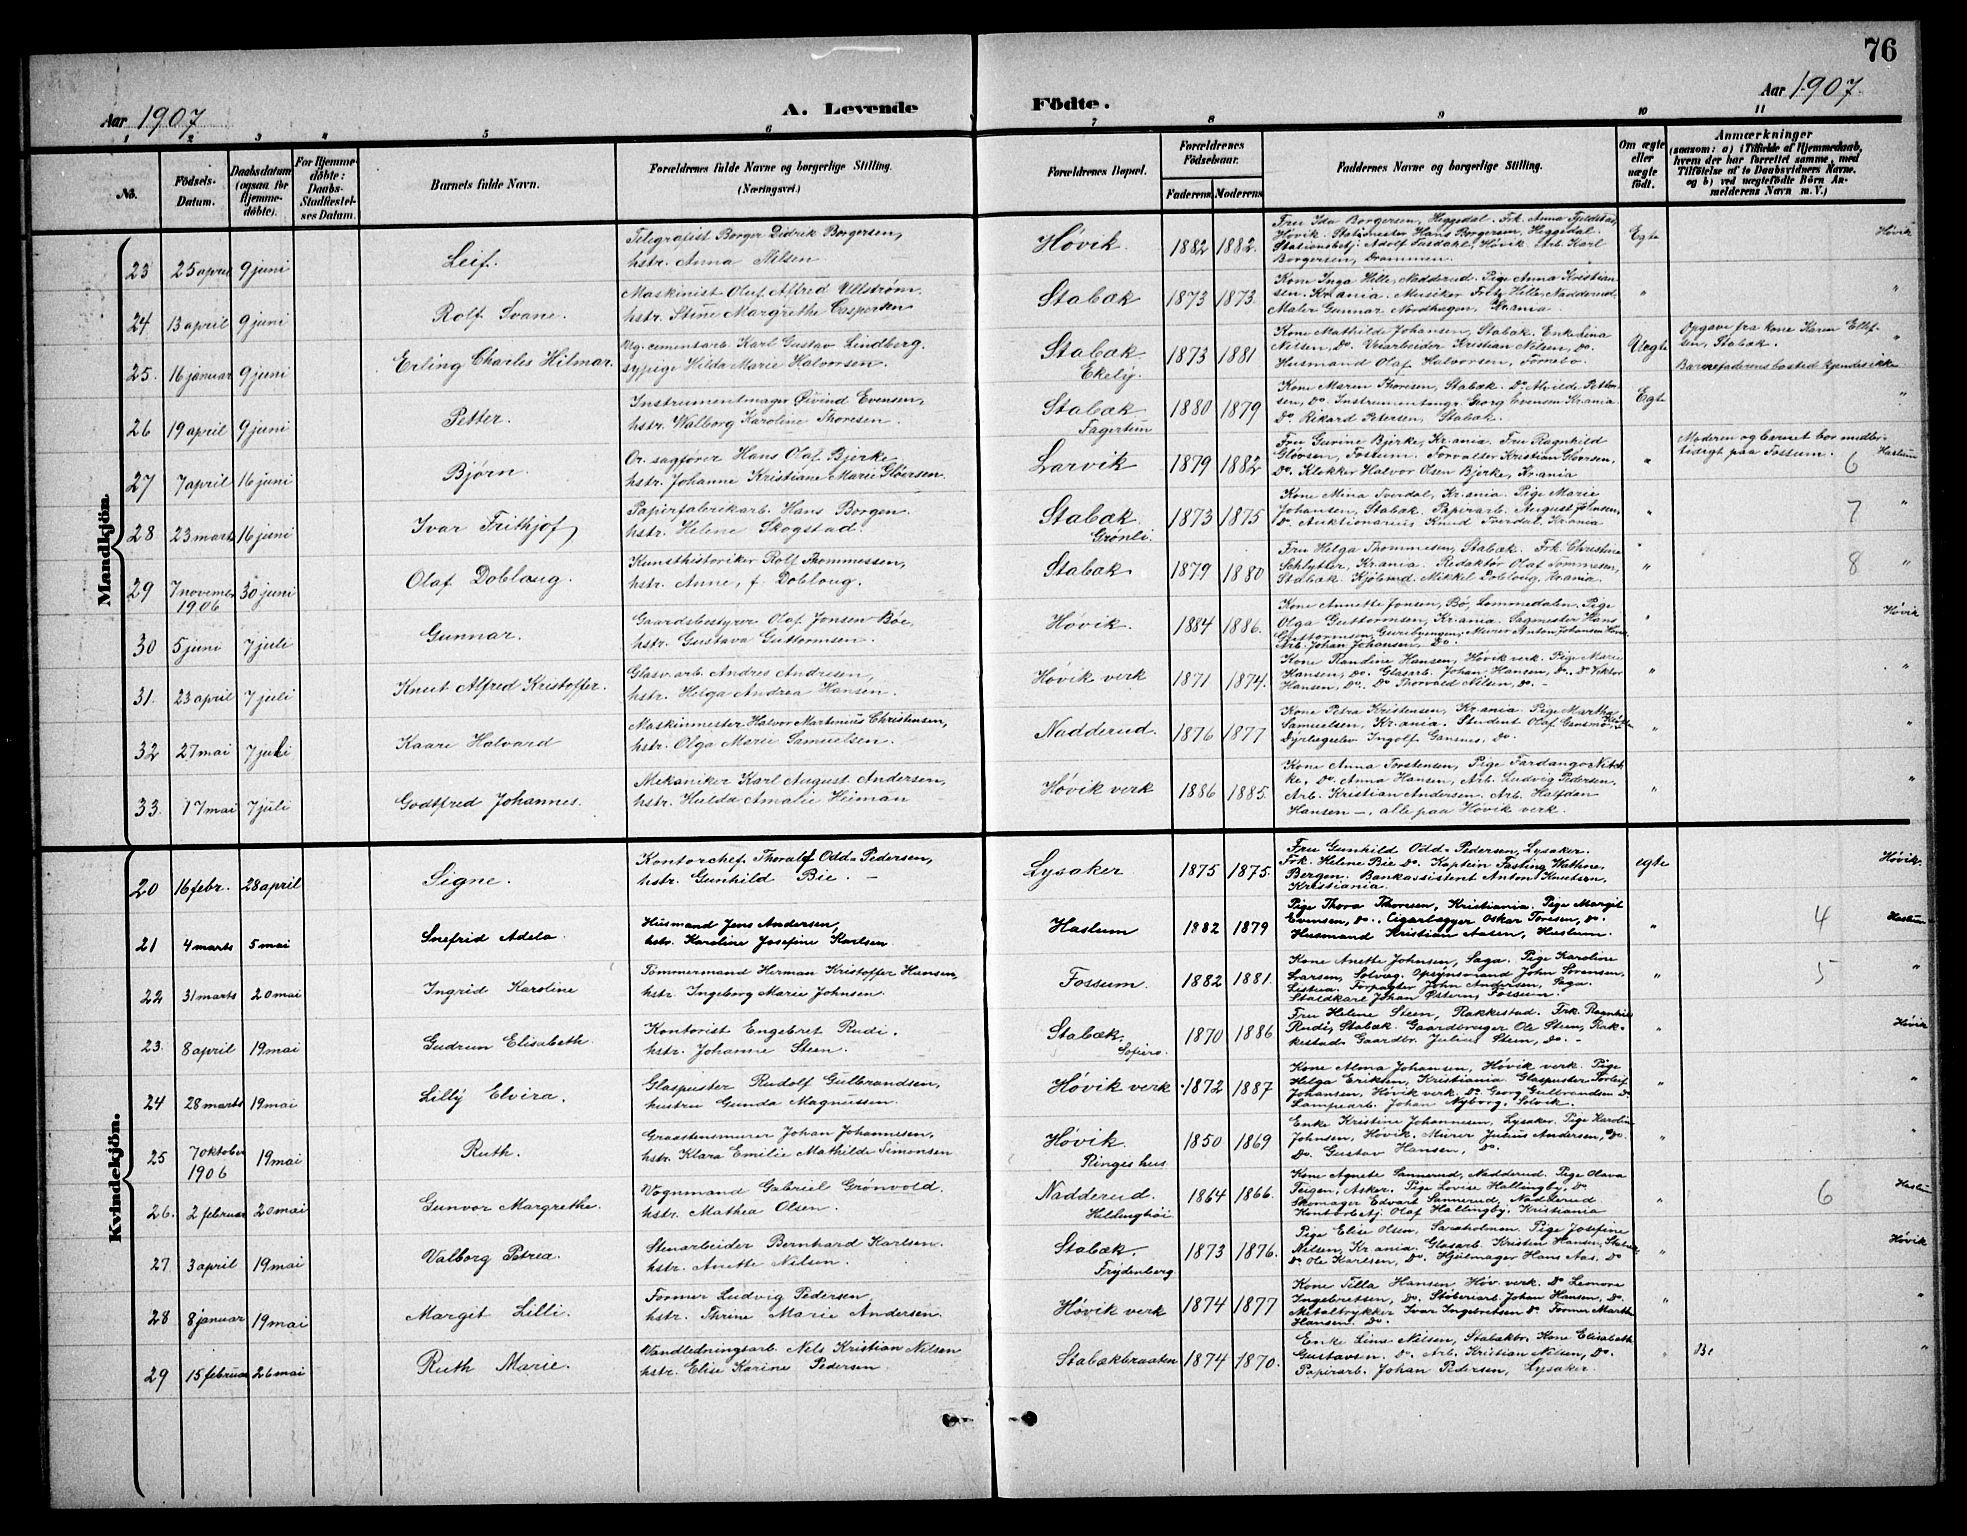 76
Aar 1907
A. Levende
Födte.
Aar 1907.
1 2 3 4 5 6 7 8 9 10 11
No.
Födsels-Datum.
Daabsdatum (ogsaa for Hjemme-döbte).
For Hjemme-döbte: Daabs-Stadfæstel-ses Datum.
Barnets fulde Navn.
Forældrenes fulde Navne og borgerlige Stilling. (Næringsvei.)
Forældrenes Bopæl.
Forældrenes Födselsaar.
Faderens. Moderens.
Faddernes Navne og borgerlige Stilling.
Om ægte eller uægte födt.
Anmærkninger
(saasom: a) i Tilfælde af Hjemmedaab, hvem der har forrettet samme, med Tilföielse af to Daabsvidners Navne. og b) ved uægtefödte Börn An-melderens Navn m. V.)
Mandkjön.
23 25 april 9 juni Leif. Telegrafist Borger Didrik Borgersen, hstr. Anna Nilsen Høvik. 1882 1882. Fru Ida Borgersen, Heggedal. Frk. Anna Fjeldstad, Høvik. Stationsmester Hans Borgersen, Heggedal. Stationsbetj. Adolf Fusdahl, Høvik. Arb. Karl Borgersen, Drammen. Egte Høvik
24 13 april 9 juni Rolf Svane. Maskinist Oluf Alfred Ullström. hstr. Stine Margrethe Caspersen Stabæk 1873 1873. Kone Inga Hille, Nadderud. Pige Anna Kristiansen, Kr.ania. Musiker Fritz Hille, Nadderud, Maler Gunnar Nordhagen, Kr.ania " "
25. 16 januar 9 juni Erling Charles Hilmar. Ug. cementarb. Karl Gustav Lindberg. sypige Hilda Marie Halvorsen. Stabæk Ekely. 1873 1881 Kone Mathilde Johansen, Stabæk. Enke Lina Nilsen, Do. Veiarbeider Kristian Nilsen, Do. Husmand Olaf Halvorsen, Fornebo Uægte Opgave fra kone Karen Ellefsen, Stabæk. Barnefaderens bosted kjendes ikke "
26 19 april 9 juni Petter. Instrumentmager Øivind Evensen, hstr. Walborg Karoline Thoresen. Stabæk Fagertun 1880 1879 Kone Maren Thoresen, Stabæk. Do. Alvilde Pettersen, Do. Instrumentmgr. Georg Evensen Kr.ania Do. Rikard Petersen, Stabæk. Egte "
27 7 april 16 juni Bjørn. Or. sagfører Hans Olaf Bjerke hstr. Johanne Kristiane Marie Gløersen. Larvik 1879 1882 Fru Gurine Bjerke, Kr.ania. Fru Ragnhild Gløersen, Fossum. Forvalter Kristian Gloersen, Do. Klokker Halvor Olsen Bjerke, Kr.ania " Moderen og barnet bor midlertidigt paa Fossum. 6 Haslum
28 23 marts 16 juni Ivar Frithjof Papirfabrikarb. Hans Borgen. hstr. Helene Skogstad. Stabæk Grønli. 1873 1875 Kone Mina Tverdal, Kr.ania. Pige Marie Johansen, Stabæk. Papirarb. August Johnsen, Do. Auktionarius Knud Tverdal, Kr.ania " 7 "
29 7 november 1906 30 juni Olaf Dobloug. Kunsthistoriker Rolf Thommessen, hstr. Anne, f. Dobloug. Stabæk. 1879 1880 Fru Helga Thommesen, Stabæk. Frk. Christine Schlytter, Kr.ania. Redaktør Olaf Tommesen, Stabæk. Kjøbmd. Mikkel Dobloug, Kr.ania " 8 "
30 5 juni 7 juli Gunnar. Gaardsbestyrer Olaf Jonsen Bøe, hstr. Gustava Guttormsen. Høvik. 1884 1886. Kone Annette Jonsen, Bø, Lommedalen. Pige Olga Guttormsen, Kr.ania. Sagmester Hans Guttormsen, Murer Anton Johansen Arb. Johan Johansen, Do. " Høvik
31. 23 april 7 juli Knut Alfred Kristoffer. Glasv. arb. Andres Andresen, hstr. Helga Andrea Hansen. Høvik verk 1871 1874. Kone Randine Hansen, Høvik verk. Pige Marie Hansen, Do. Glasarb. Johan Hansen, Do., Do Viktor Hansen, Do. Do Thorvald Nilsen, Do. " "
32 27 mai 7 juli Kaare Halvard Maskinmester Halvor Martinius Christensen, hstr. Olga Marie Samuelsen. Nadderud. 1876 1877 Kone Petra Kristensen, Kr.ania. Pige Martha Samuelsen, Kr.ania. Student Olaf Gansmo, Dyrlægeelev Ingolf Gansmo, Do. " "
33. 17 mai 7 juli Godtfred Johannes. Mekaniker Karl August Andersen, hstr. Hulda Amalie Heiman Høvik verk 1886 1885. Kone Anna Torstensen, Pige Fardango Nitchke, Do. Anna Hansen, Arb. Ludvig Pedersen. Arb. Kristian Andersen. Arb. Halfdan Hansen —, alle paa Høvik verk. " "
Kvindekjön.
20 16 febr. 28 april Signe. Kontorchef. Thoralf Odd-Pedersen, hstr. Gunhild Bie. Lysaker 1875 1875. Fru Gunhild Odd-Pedersen, Lysaker. Frk. Helene Bie Do. Kaptein Fasting Wathne, Bergen. Bankassistent Anton Knutsen, Kristiania. egte Høvik.
21 4 marts 5 mai Snefrid Adela. Husmand Jens Andersen, hstr. Karoline Josefine Karlsen Haslum 1882 1879 Pige Thora Thoresen, Kristiania. Pige Margit Evensen, Do. Cigarlægger Oskar Toresen, Do. Husmand Kristian Aasen, Haslum. " 4 Haslum
22 31 marts 20 mai Ingrid Karoline Tömmermand Herman Kristoffer Hansen, hstr. Ingeborg Marie Johnsen. Fossum. 1882 1881. Kone Anette Johnsen, Saga. Pige Karoline Larsen, Solvag. Opsynsmand John Sörensen, Listua. Forpagter John Andersen, Saga. Staldkarl Johan Østern, Fossum. " 5 "
23. 8 april 19 mai Gudrun Elisabeth. Kontorist Engebret Rudi. hstr. Johanne Steen. Stabæk. Sofiero. 1870 1886 Fru Helene Steen, Rakkestad. Frk. Ragnhild Rudi, Stabæk. Gaardbruger Ole Steen, Rakkestad. Gaardbr. Julius Steen, Do. " Høvik
24 28 marts 19 mai Lilly Elvira. Glaspuster Rudolf Gulbrandsen, hustru Gunda Magnussen. Høvik verk 1872 1887 Kone Alma Johansen, Høvik verk. Pige Helga Eriksen, Kristiania. Glaspuster Torleif Johansen, Høvik verk, Do Georg Gulbrandsen Do Lampearb. Johan Nyborg, Solvik. " "
25 7 oktober 1906 19 mai Ruth. Graastensmurer Johan Johannesen, hstr. Klara Emilie Mathilde Simonsen Høvik. Ringishus 1850 1869 Enke Kristine Johannesen, Lysaker. Pige Karolin Johnsen, Høvik. Murer Julius Andersen, Do. Do. Gustav Hansen, Do. " "
26. 2 februar 20 mai Gunvor Margrethe. Vognmand Gabriel Grönvold. hstr. Mathea Olsen. Nadderud. 1864 1866. Kone Agnete Sannerud, Nadderud. Pige Olava Teigen, Asker. Pige Lovise Hallingby, Do. Skomager Edvart Sannerud, Nadderud Kontorbetj. Olaf Hallingby, Kristiania " 6 Haslum
27 3 april 19 mai Valborg Petrea. Stenarbeider Bernhard Karlsen. hstr. Anette Nilsen. Stabæk. Frydenberg 1873 1876. Pige Elise Olsen, Saraholmen. Pige Josefine Nilsen, Kr.ania. Glasarb. Kristen Hansen, Stabæk Do. Ole Karlsen, Do. Hjulmager Hans Aas. Do " Høvik
28 8 januar 19 mai Margit Lilli. Former Ludvig Pedersen hstr. Thrine Marie Andersen. Høvik verk 1874 1877 Kone Tilla Hansen, Høv. verk. Do Leonora Ingebretsen, Do. Støberiarb. Johan Hansen, Do. Metaltrykker Ivar Ingebretsen Do. Former Martin Hansen. Do. " "
29 15 februar 26 mai Ruth Marie. Vandledningsarb. Nels Kristian Nilsen hstr. Elise Karine Pedersen Stabækbraaten 1874 1870. Enke Lina Nilsen, Stabækbr. Kone Elisabeth Gustavsen. Do. Arb. Kristian Nilsen, Do. Papirarb. Johan Pedersen, Lysaker. " "